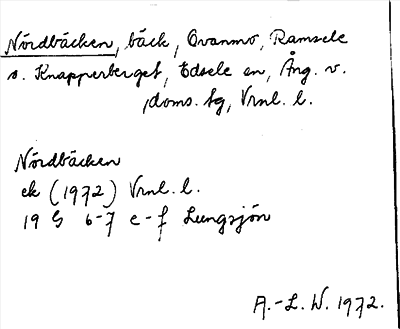 Nordbäcken, bäck, Ovanmo, Ramsele
s. Knapperberget, Edsele sn, Ång. v.
doms. tg, Vrnl. l.
Nordbäcken
ek (1972) Vrnl. l.
19 G 6-7 e-f Lungsjön
A.-L. W. 1972.